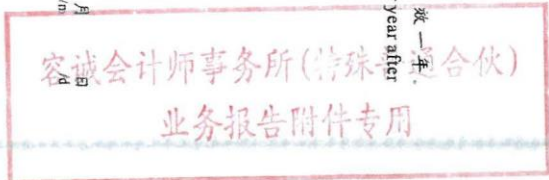 效一年.
year after
月 日
/m /d
容诚会计师事务所(特殊普通合伙)
业务报告附件专用